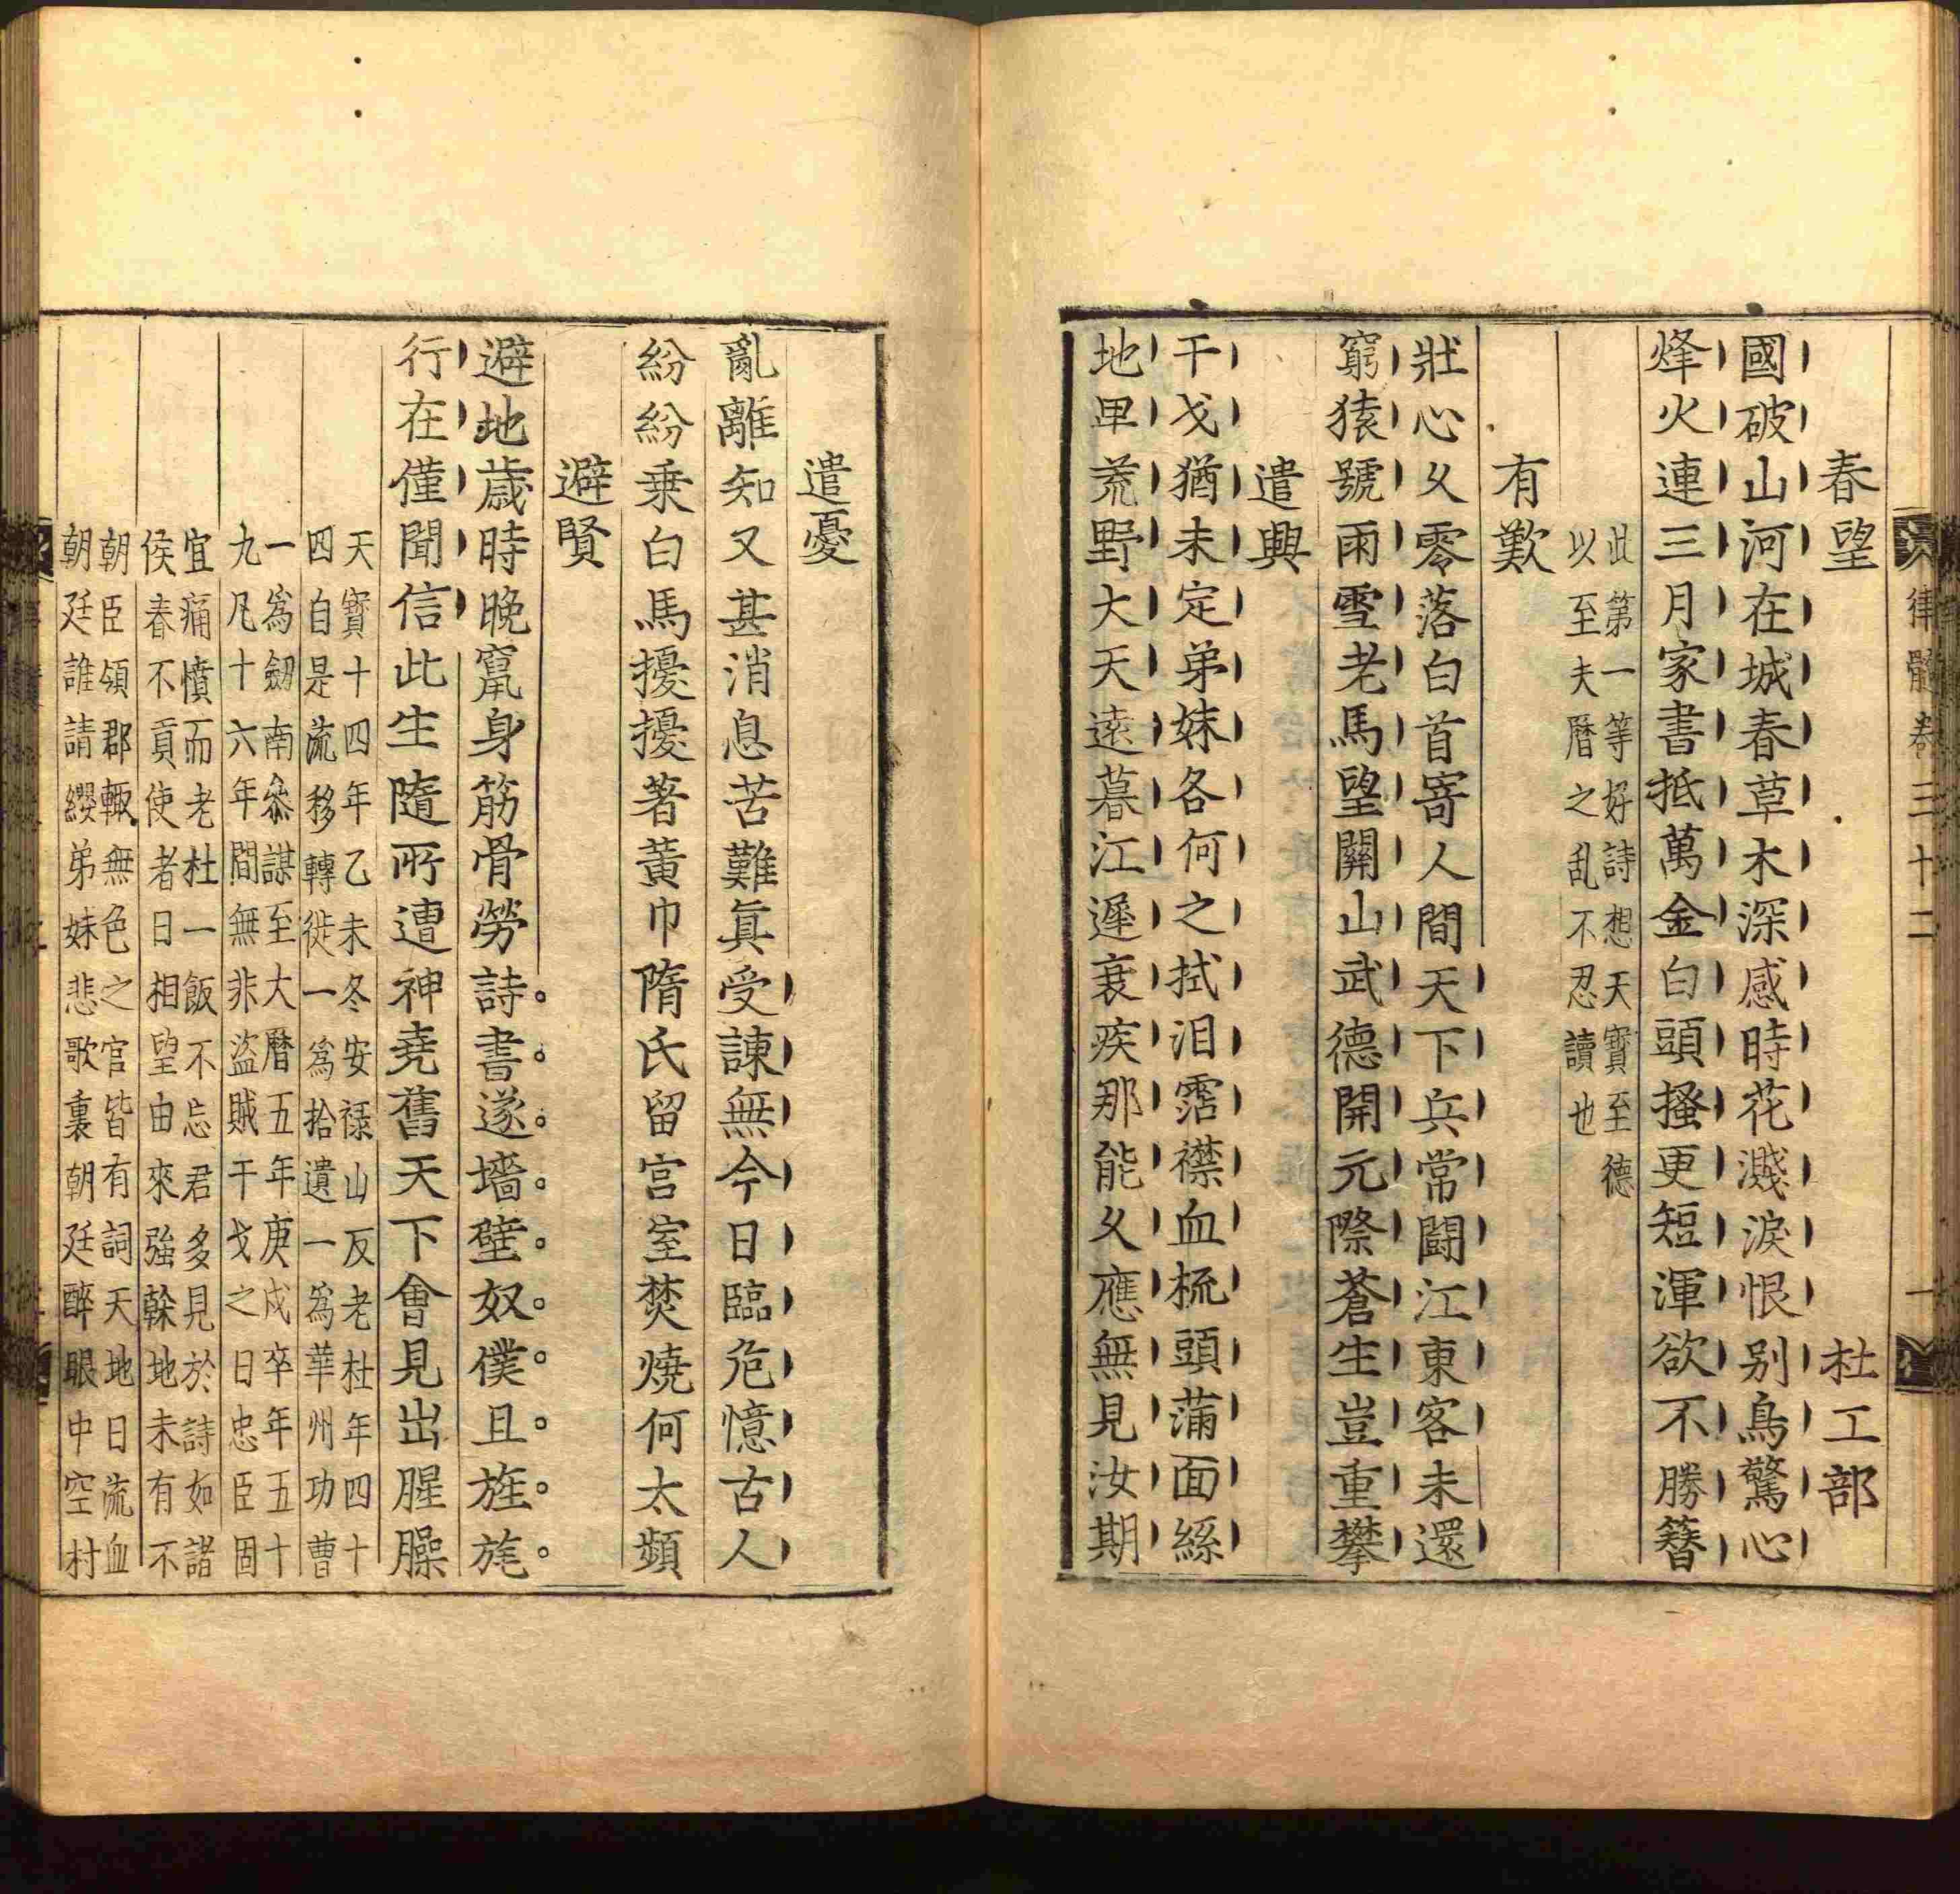 律髓卷三十二
一
春望　杜工部
國破山河在城春草木深感時花濺淚恨别鳥驚心
烽火連三月家書抵萬金白頭搔更短渾欲不勝簪
此第一等好詩想天寶至德
以至大曆之乱不忍讀也
有歎
壯心久零落白首寄人間天下兵常鬪江東客未還
窮猿號雨雪老馬望關山武德開元際蒼生豈重攀
遣興
干戈猶未定弟妹各何之拭泪霑襟血梳頭滿面絲
地卑荒野大天遠暮江遲衰疾那能久應無見汝期
遣憂
亂離知又甚消息苦難真受諫無今日臨危憶古人
紛紛乗白馬擾擾著黃巾隋氏留宫室焚燒何太頻
避賢
避地歲時晚竄身筋骨勞詩書遂墻壁奴僕且旌旄
行在僅聞信此生隨所遭神堯舊天下會見出腥臊
天寶十四年乙未冬安禄山反老杜年四十
四自是流移轉徙一為拾遺一為華州功曹
一為劒南叅謀至大曆五年庚戌卒年五十
九凡十六年間無非盜賊干戈之日忠臣固
宜痛憤而老杜一飯不忘君多見於詩如諸
侯春不貢使者日相望由來強幹地未有不
朝臣領郡輙無色之官皆有詞天地日流血
朝廷誰請纓弟妹悲歌裏朝廷醉眼中空村